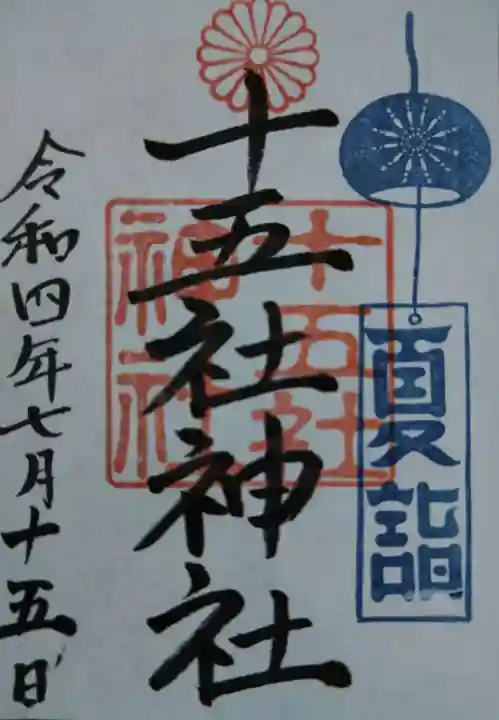 夏詣
十五社神社
十五社
神社
令和四年七月十五日